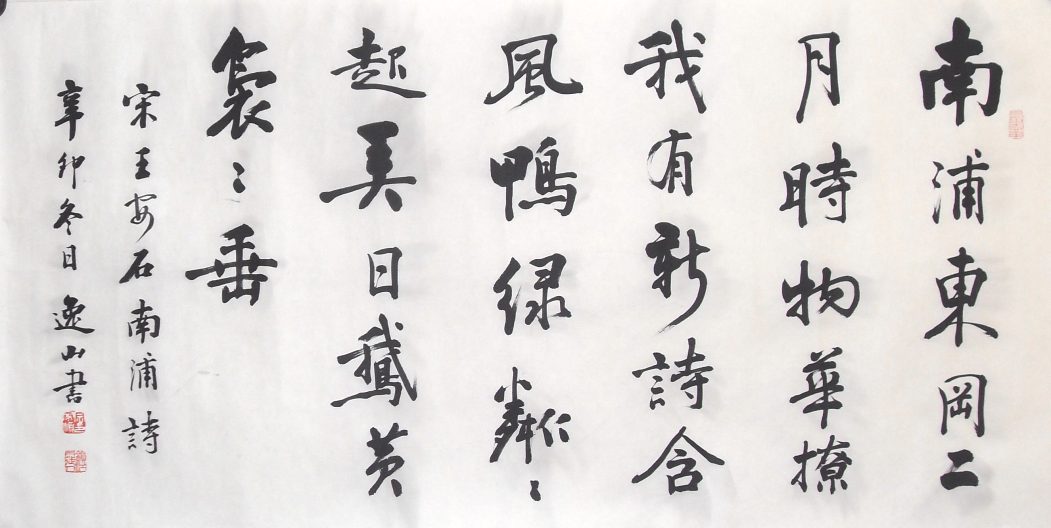 南浦東岡二
月時物華撩
我有新詩含
風鴨緑粼〻
起弄日鵝黄
裊〻垂
宋王安石南浦詩
辛卯冬日逸山書